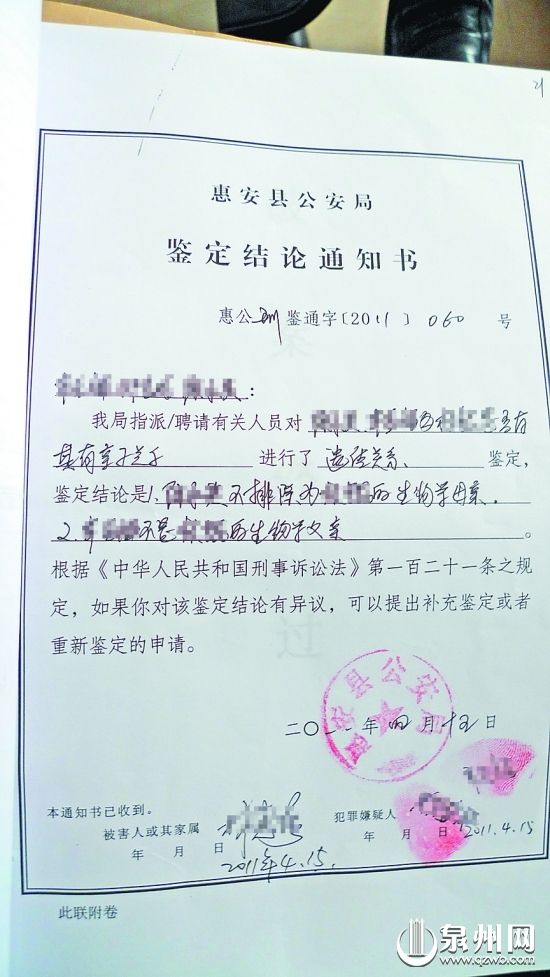 21
惠安县公安局
鉴定结论通知书
惠公刑鉴通字〔2011〕060号
：
我局指派/聘请有关人员对 是否有
具有亲子关系 进行了 遗传关系 鉴定，
鉴定结论是1. 不排除为 的生物学母亲。
2. 不是 的生物学父亲 。
根据《中华人民共和国刑事诉讼法》第一百二十一条之规
定，如果你对该鉴定结论有异议，可以提出补充鉴定或者
重新鉴定的申请。
惠安县公安局
二〇一一年四月十五日
本通知书已收到。
被害人或其家属
犯罪嫌疑人
年 月 日
年 月 日
2011.4.15
2011年4.15.
此联附卷
泉州网
www.qzwb.com